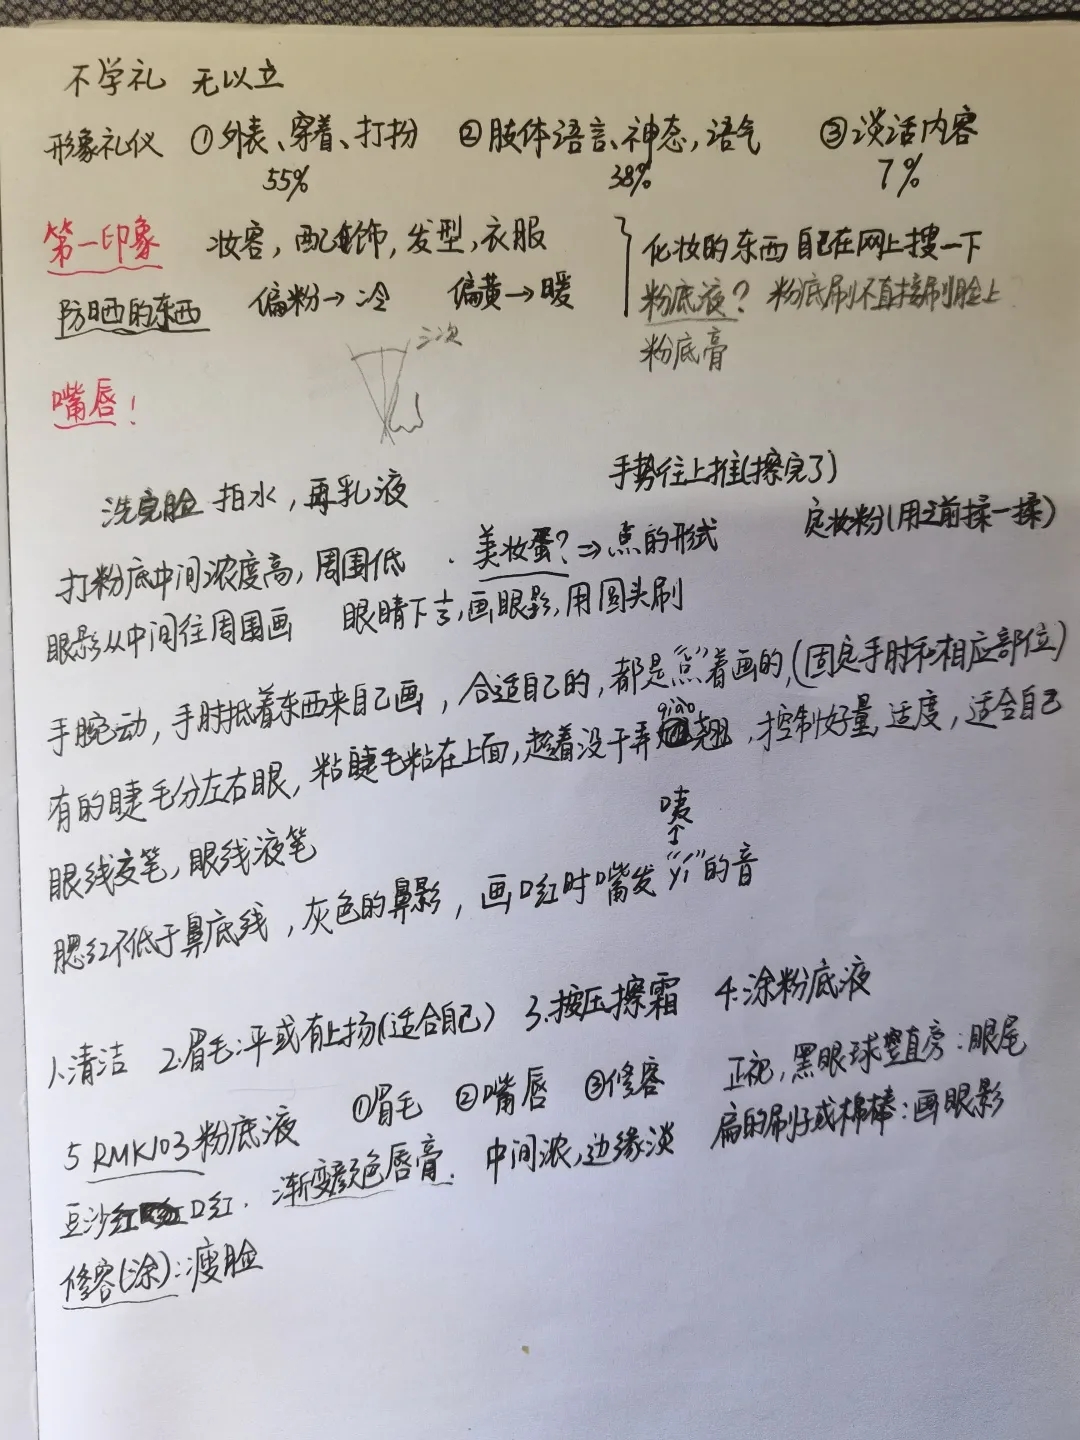 不学礼 无以立
形象礼仪 ①外表、穿着、打扮 ②肢体语言、神态,语气 ③谈话内容
55% 38% 7%
第一印象 妆容,配饰,发型,衣服
化妆的东西自己在网上搜一下
防晒的东西 偏粉→冷 偏黄→暖
粉底液? 粉底刷不直接刷脸上
粉底膏
三次
嘴唇!
手势往上推(擦完了)
洗完脸 拍水,再乳液
定妆粉(用之前揉一揉)
打粉底中间浓度高,周围低 · 美妆蛋?⇒点的形式
眼影从中间往周围画 眼睛下⅓,画眼影,用圆头刷
手腕动,手肘抵着东西来自己画,合适自己的,都是“点”着画的,(固定手肘和相应部位)
qiào
有的睫毛分左右眼,粘睫毛粘在上面,趁着没干弄翘,控制好量,适度,适合自己
咦
↑
眼线夜笔,眼线液笔
腮红不低于鼻底线,灰色的鼻影,画口红时嘴发“yi”的音
1.清洁 2.眉毛:平或有上扬(适合自己) 3.按压擦霜 4.涂粉底液
5 RMK103粉底液 ①眉毛 ②嘴唇 ③修容 正视,黑眼球竖直旁:眼尾
豆沙红口红. 渐变颜色唇膏. 中间浓,边缘淡 扁的刷子或棉棒:画眼影
修容(涂):瘦脸